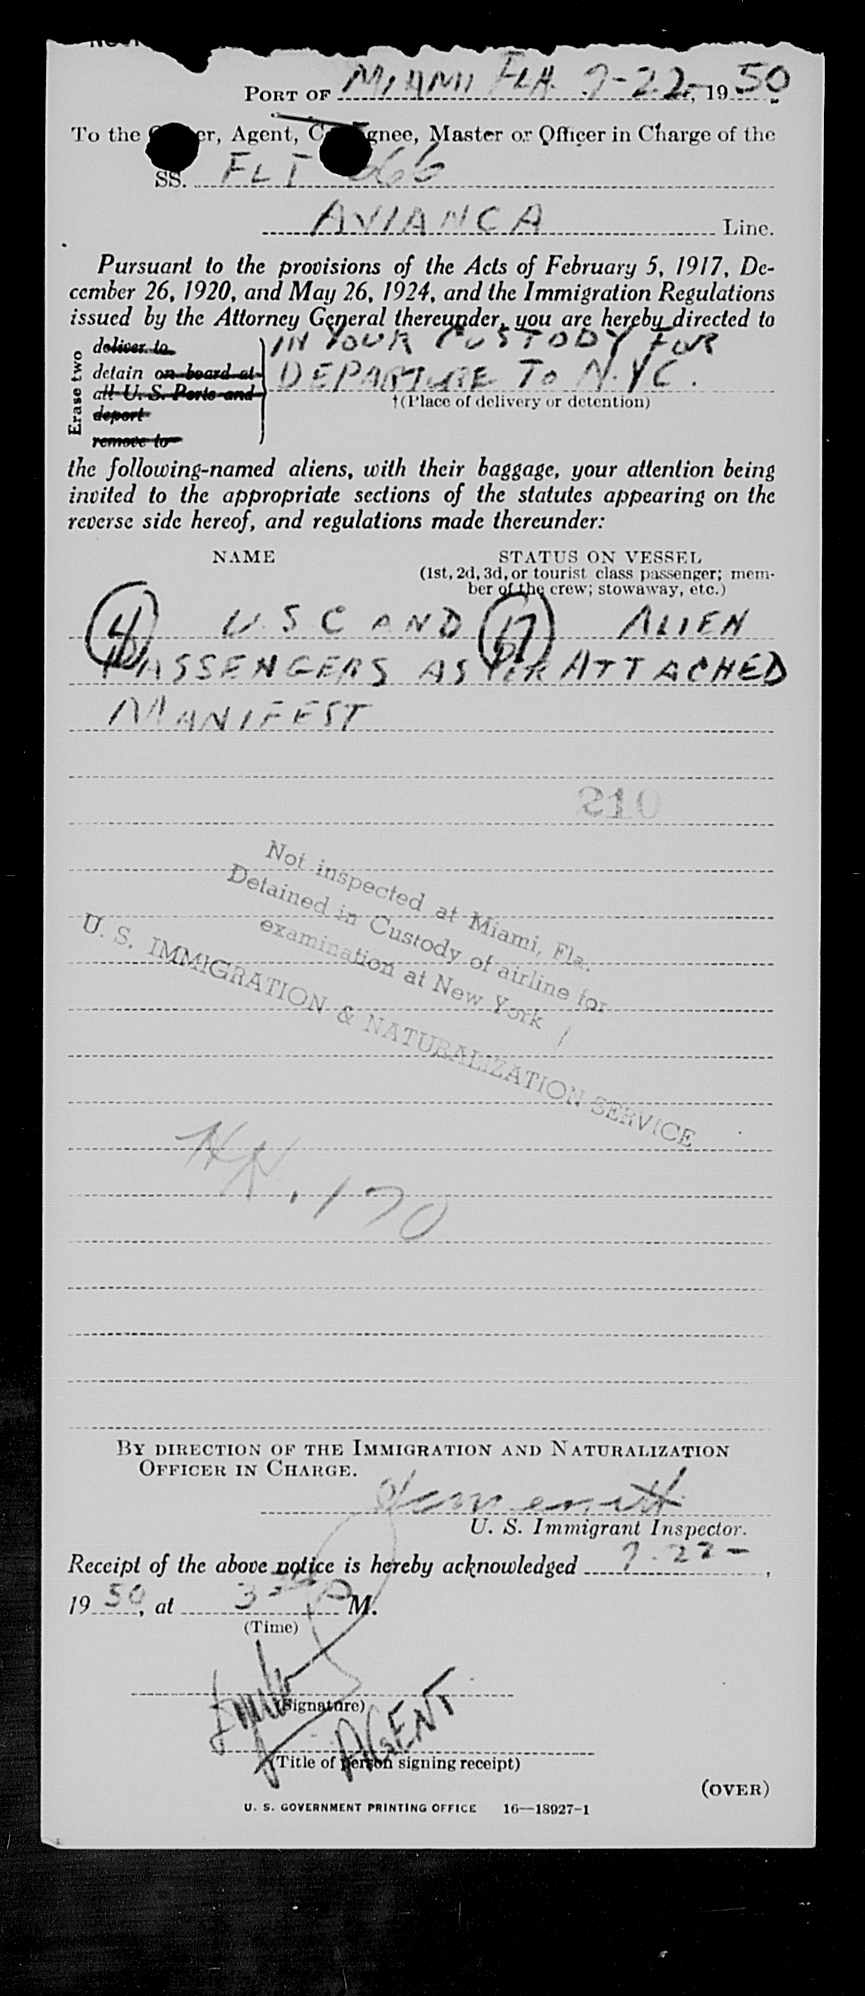 PORT OF MIAMI FLA. 9-22-, 1950
To the er, Agent, C gnee, Master or Officer in Charge of the
SS. FLT 666
AVIANCA Line.
Pursuant to the provisions of the Acts of February 5, 1917, De-
cember 26, 1920, and May 26, 1924, and the Immigration Regulations
issued by the Attorney General thereunder, you are hereby directed to
Erase two
deliver to
detain on board at
all U. S. Ports and
deport
remove to
IN YOUR CUSTODY FOR
DEPARTURE TO N.Y.C.
†(Place of delivery or detention)
the following-named aliens, with their baggage, your attention being
invited to the appropriate sections of the statutes appearing on the
reverse side hereof, and regulations made thereunder:
NAME
STATUS ON VESSEL
(1st, 2d, 3d, or tourist class passenger; mem-
ber of the crew; stowaway, etc.)
4 USC AND 17 ALIEN
PASSENGERS AS PER ATTACHED
MANIFEST
210
Not inspected at Miami, Fla.
Detained in Custody of airline for
examination at New York
U. S. IMMIGRATION & NATURALIZATION SERVICE
170
BY DIRECTION OF THE IMMIGRATION AND NATURALIZATION
OFFICER IN CHARGE.
U. S. Immigrant Inspector.
Receipt of the above notice is hereby acknowledged 9-22-,
1950, at 3 A M.
(Time)
(Signature)
AGENT
(Title of person signing receipt)
(OVER)
U. S. GOVERNMENT PRINTING OFFICE 16—18927-1